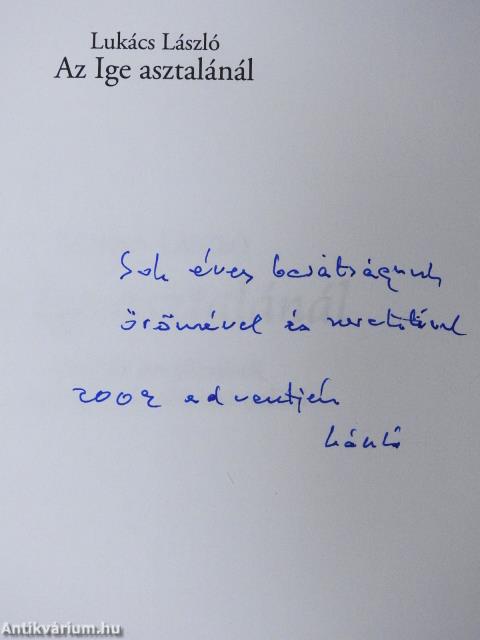 Lukács László
Az Ige asztalánál
Sok éves barátságunk
örömével és szeretetével
2002 adventjén
László
Antikvárium.hu